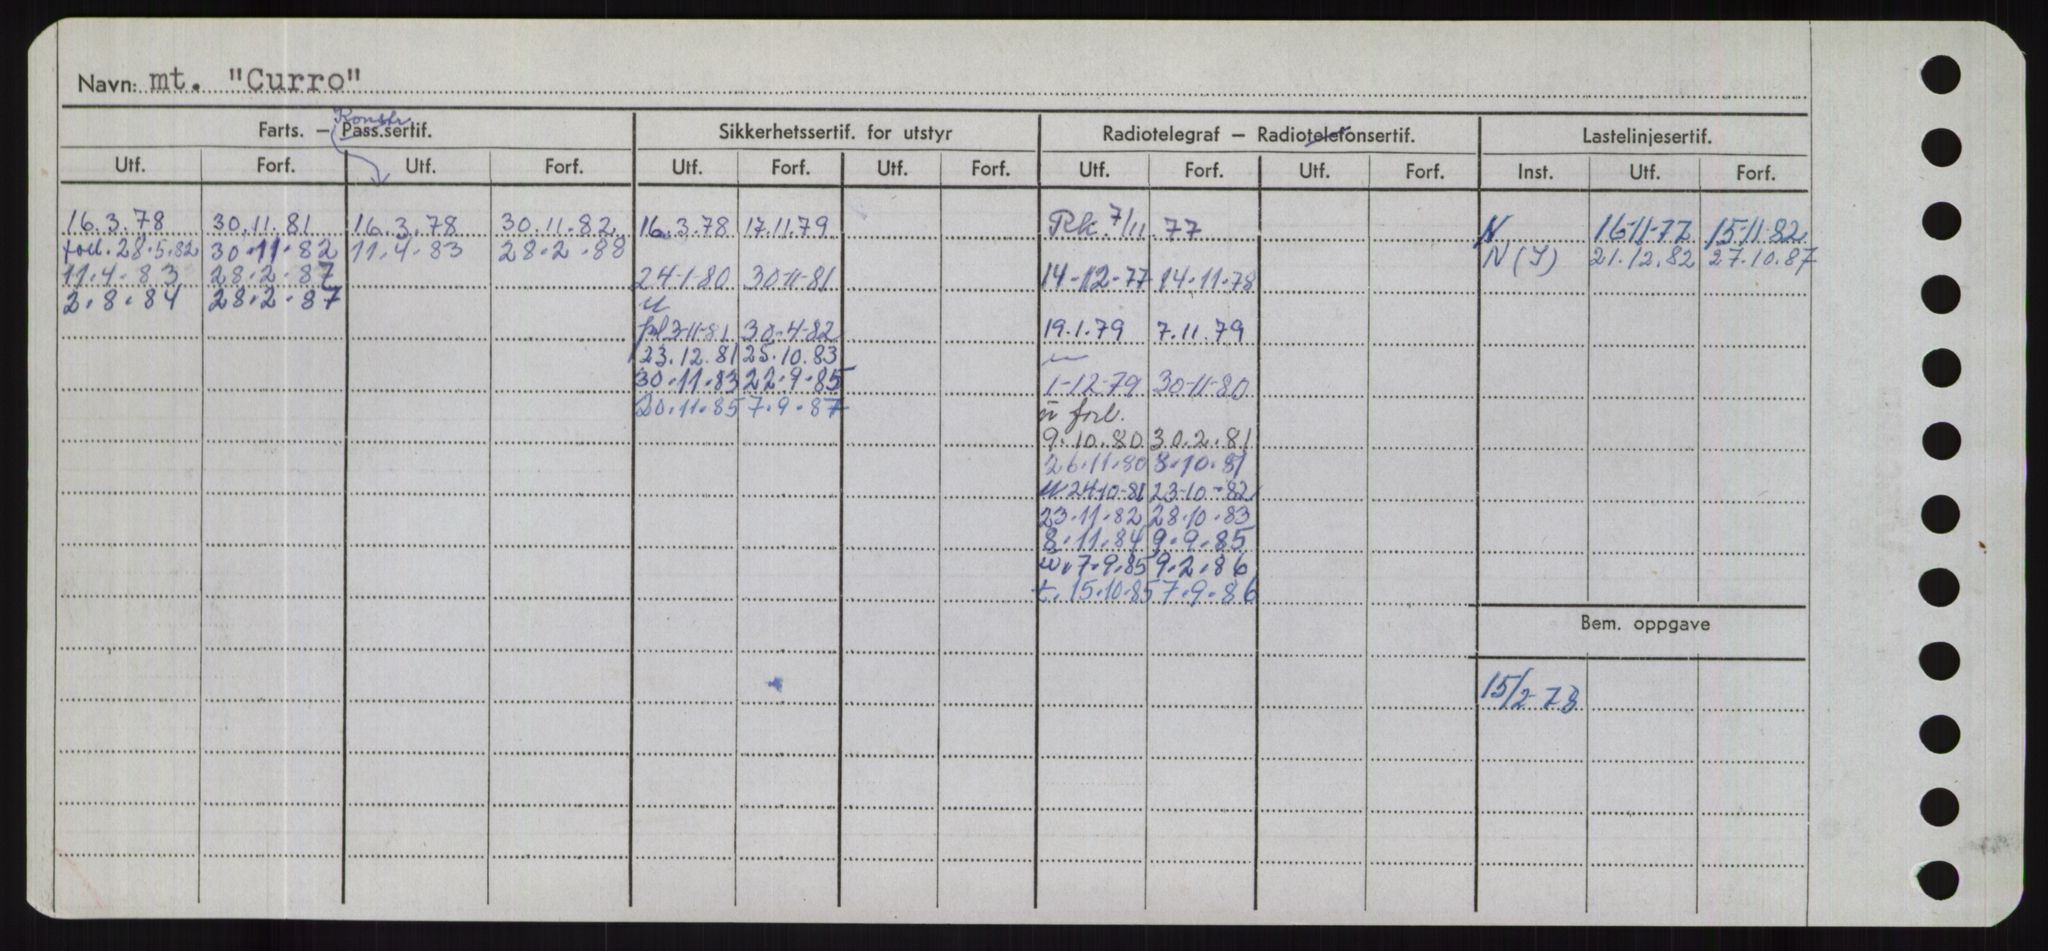 Navn: mt. "Curro"
Konstr.
Farts. – Pass.sertif. Sikkerhetssertif. for utstyr Radiotelegraf – Radiotelefonsertif. Lastelinjesertif.
Utf. Forf. Utf. Forf. Utf. Forf. Utf. Forf. Utf. Forf. Utf. Forf. Inst. Utf. Forf.
16.3.78 30.11.81 16.3.78 30.11.82 16.3.78 17.11.79 Rk. 7/11.77 N 16-11-77 15-11-82
forl. 28.5.82 30.11.82 11.4.83 28.2.88 N (I) 21.12.82 27.10.87
11.4.83 28.2.87 24-1-80 30-11-81 14-12-77 14-11-78
2.8.84 28.2.87
u
forl 3-11-81 30-4-82 19.1.79 7.11.79
23.12.81 25.10.83
30.11.83 22.9.85 1-12-79 30-11-80
20.11.85 7.9.87 u forl.
9.10.80 30.2.81
26.11.80 8.10.81
u 24-10-81 23-10-82
23.11.82 28.10.83
8.11.84 9.9.85
u. 7.9.85 9.2.86
t. 15.10.85 7.9.86
Bem. oppgave
15/2-78